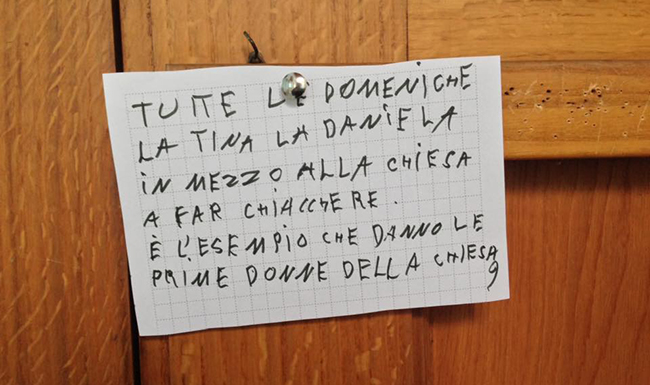 TUTTE LE DOMENICHE
LA TINA LA DANIELA
IN MEZZO ALLA CHIESA
A FAR CHIACCHERE.
È L'ESEMPIO CHE DANNO LE
PRIME DONNE DELLA CHIESA?